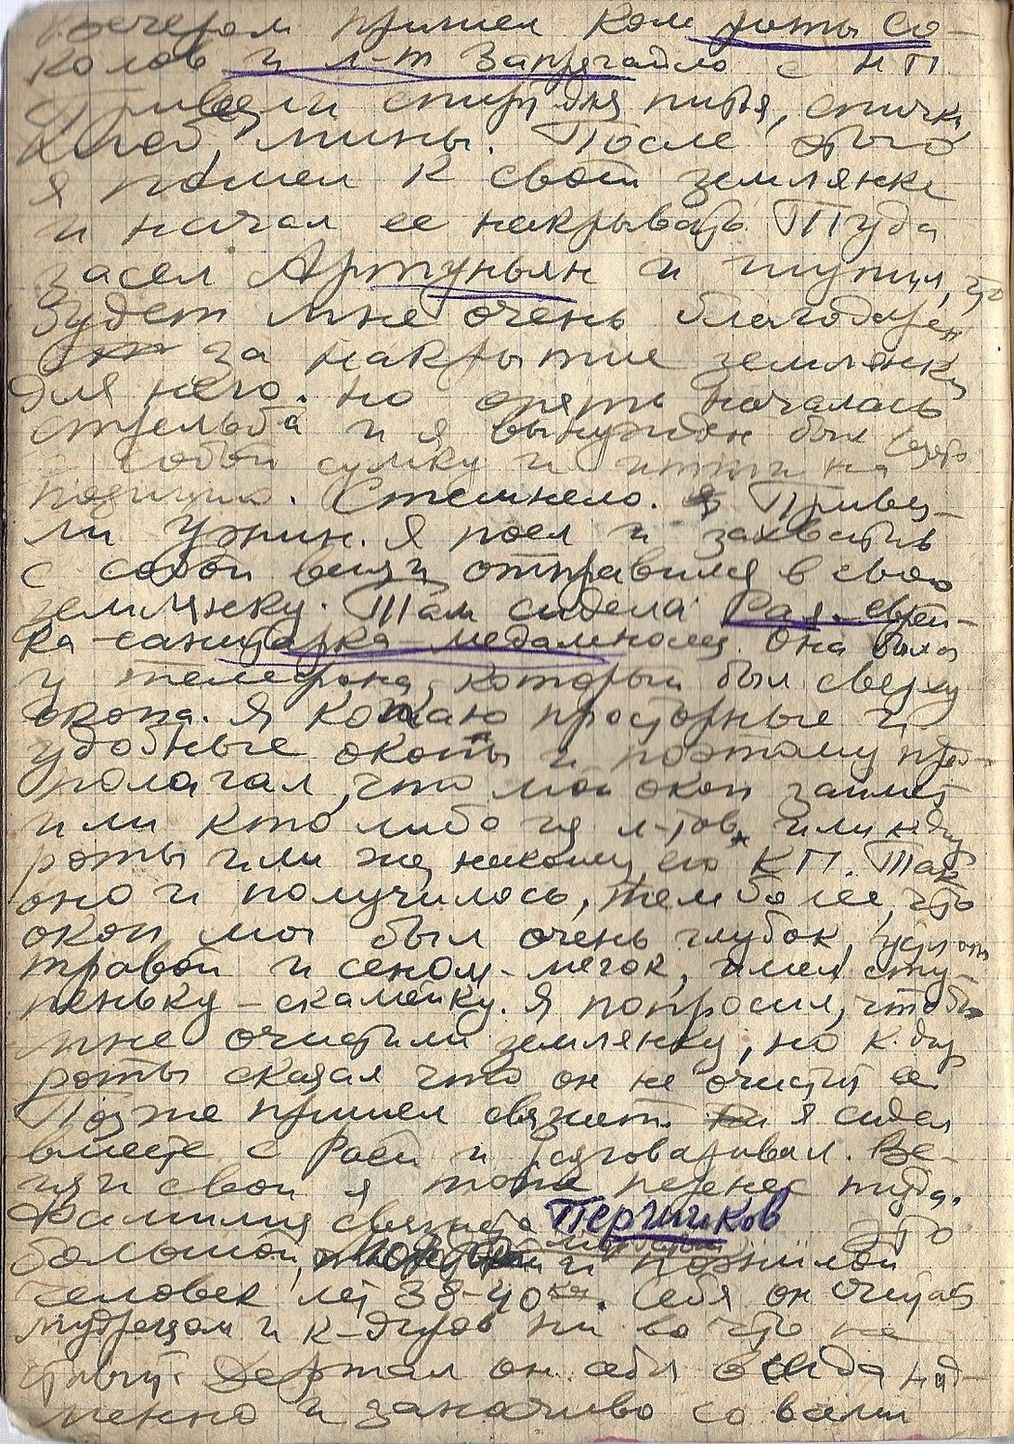 Вечером пришел ком роты Со-
колов и л-т Запрягайло с НП
Привезли спирт для питья, спички,
хлеб, мины. После этого
я пошел к своей землянке
и начал ее накрывать. Туда
засел Арутуньян и шутил, что
будет мне очень благодарен
за накрытие землянки
для него. Но опять началась
стрельба и я вынужден был взять
с собой сумку и итти на
позицию. Стемнело. Привез-
ли ужин. Я поел и захватив
с собой вещи отправился в свою
землянку. Там сидела Рая – еврей-
ка – санитарка –
она была
у телефона, который был сверху
окопа. Я копаю просторные и
удобные окопы и поэтому пред-
полагал, что мой окоп займет
или кто либо из л-тов, или к-дир
роты или же, наконец, его КП. Так
оно и получилось, тем более, что
окоп мой был очень глубок, устлан
травой и сеном – мягок, имел сту-
пеньку – скамейку. Я попросил, чтобы
мне очистили землянку, но к-дир
роты сказал что он не очистит ее.
Позже пришел связист. я сидел
вместе с Раей и разговаривал. Ве-
щи свои я тоже перенес туда.
Фамилия связиста Перчиков Это
большой, и пожилой
человек лет 38-40. Себя он считает
мудрецом и к-диров ни во что не
ставит. Держал он себя всегда над-
менно и заносчиво со всеми